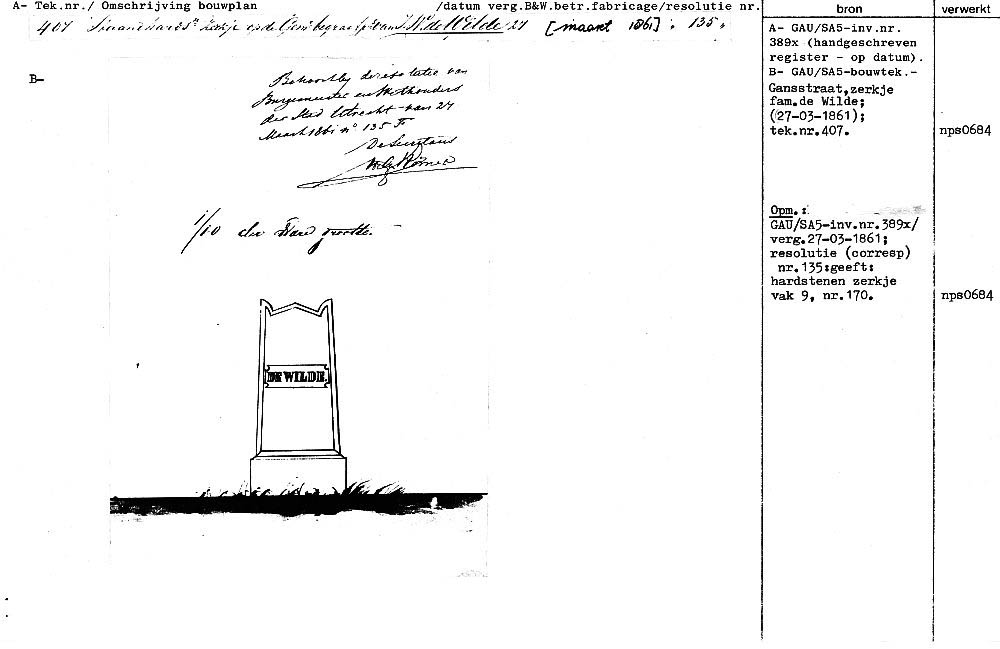 A- Tek.nr./ Omschrijving bouwplan /datum verg.B&W.betr.fabricage/resolutie nr.
bron
verwerkt
407 zerkje op de W. de Wilde 27 [maart 1861] " 135 "
B-
Behoort bij de resolutie van
Burgemeester en Wethouders
der Stad Utrecht van 27
Maart 1861 n° 135 F
De Secretaris
1/10 der Ware grootte.
DE WILDE.
A- GAU/SA5-inv.nr.
389x (handgeschreven
register - op datum).
B- GAU/SA5-bouwtek.-
Gansstraat,zerkje
fam.de Wilde;
(27-03-1861);
tek.nr.407.
nps0684
Opm.:
GAU/SA5-inv.nr.389x/
verg.27-03-1861;
resolutie (corresp)
nr.135:geeft:
hardstenen zerkje
vak 9, nr.170.
nps0684